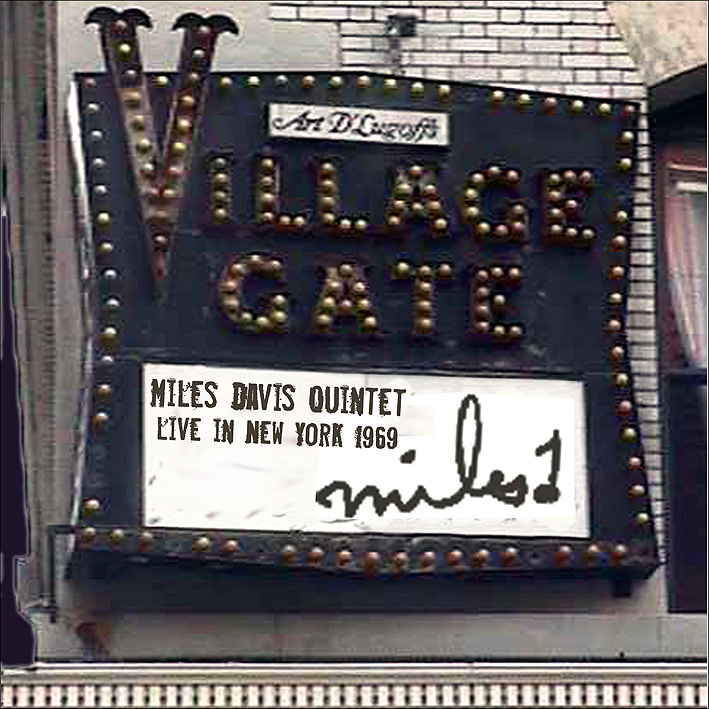 Art D'Lugoff's
VILLAGE
GATE
MILES DAVIS QUINTET
LIVE IN NEW YORK 1969
miles!